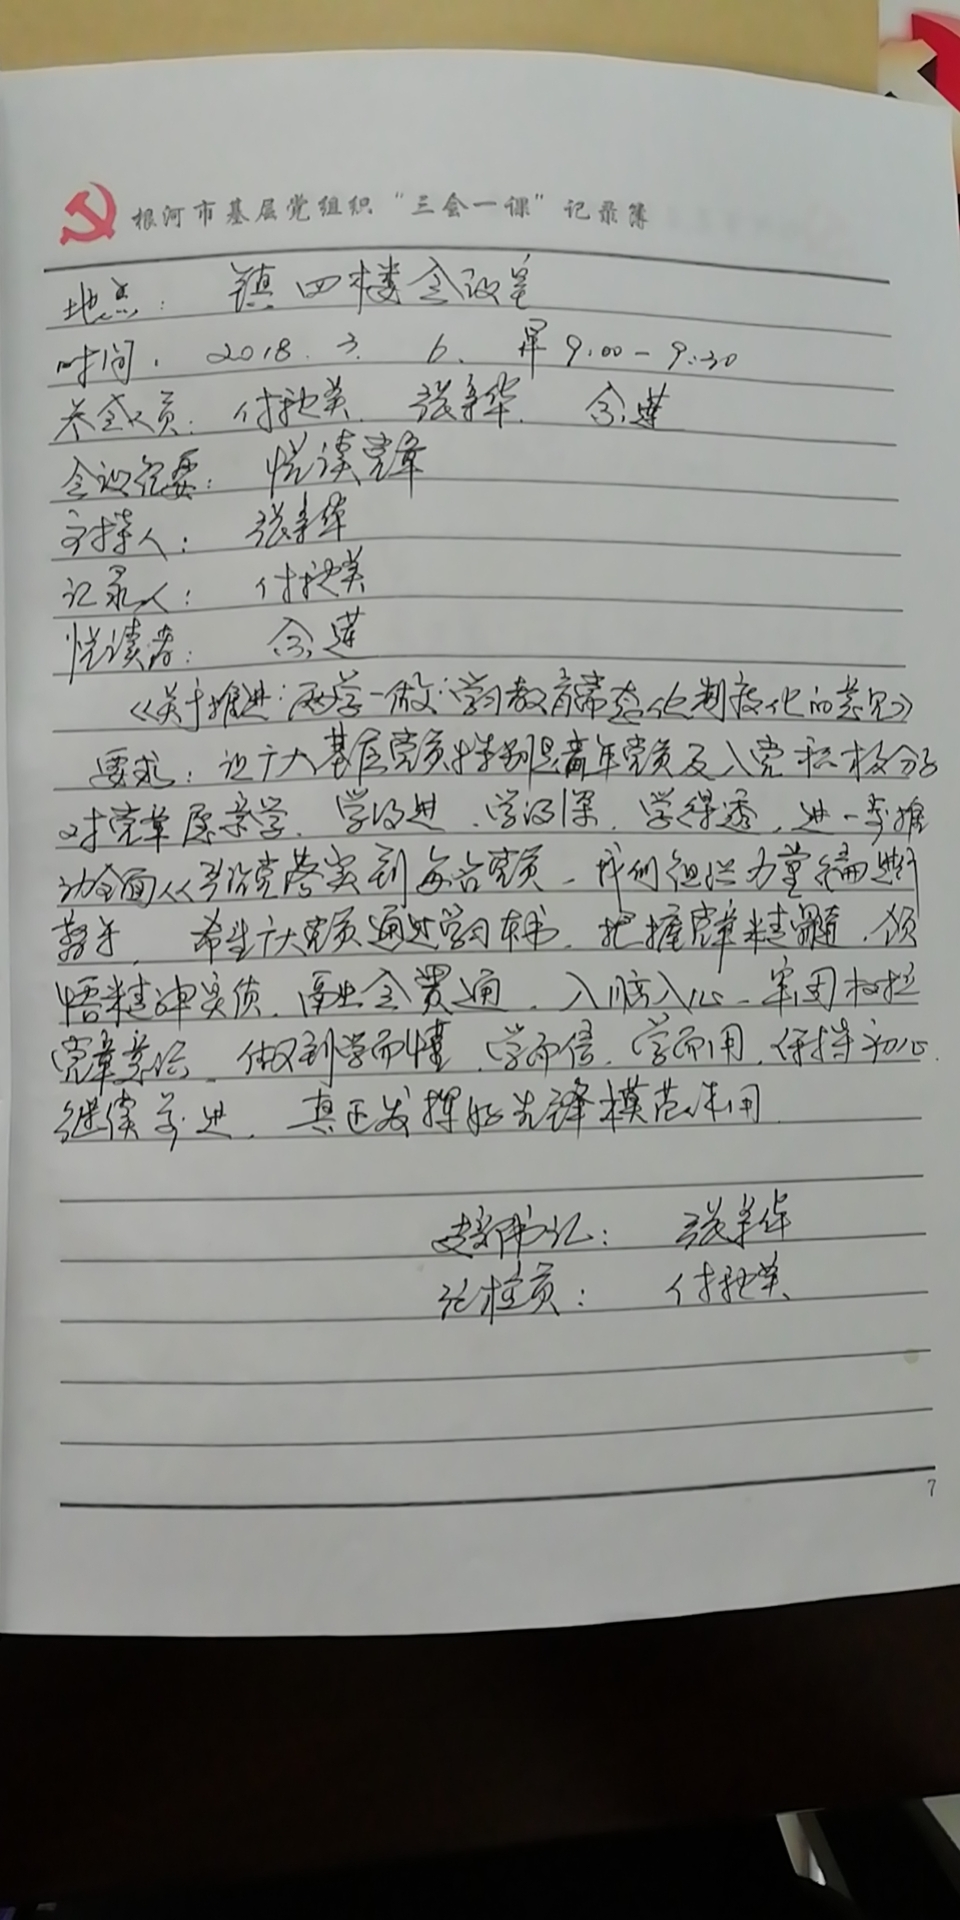 根河市基层党组织“三会一课”记录簿
地点: 镇四楼会议室
时间. 2018. 3. 6. 早 9:00-9:30
参会人员: 付艳英. 张幸华.
会议纪要: 悦读党章
主持人: 张幸华
记录人: 付艳英
悦读者:
《关于推进“两学一做”学习教育常态化制度化的意见》
要求: 让广大基层党员特别是青年党员及入党积极分子
对党章愿意学、学得进、学得深、学得透, 进一步推
动全面从严治党落实到每名党员, 我们组织力量编
希望广大党员通过学习本书, 把握党章精髓, 领
悟精神实质, 融会贯通, 入脑入心, 牢固树立
党章意识, 做到学而懂、学而信、学而用, 保持初心
继续前进, 真正发挥好先锋模范作用
支部书记: 张幸华
纪检员: 付艳英
7